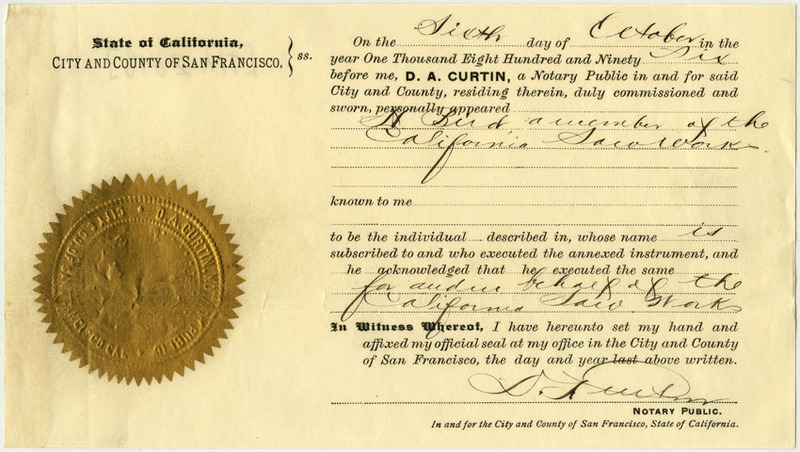 State of California,
CITY AND COUNTY OF SAN FRANCISCO.
ss.
On the Sixth day of October in the
year One Thousand Eight Hundred and Ninety Six
before me, D. A. CURTIN, a Notary Public in and for said
City and County, residing therein, duly commissioned and
sworn, personally appeared
A Bird, a member of the
California Saw Works
known to me
to be the individual described in, whose name is
subscribed to and who executed the annexed instrument, and
he acknowledged that he executed the same
for and in behalf of the
California Saw Works
In Witness Whereof, I have hereunto set my hand and
affixed my official seal at my office in the City and County
of San Francisco, the day and year last above written.
NOTARY PUBLIC.
In and for the City and County of San Francisco, State of California.
D.A. CURTIN